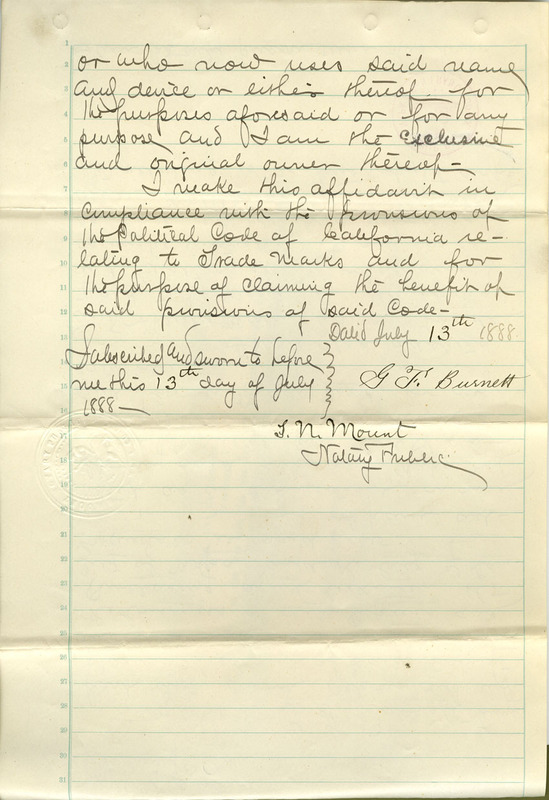 or who now uses said name
and device or either thereof for
the purposes aforesaid or for any
purpose and I am the exclusive
and original owner thereof—
I make this affidavit in
compliance with the provisions of
the Political Code of California re-
lating to Trade Marks and for
the purpose of claiming the benefit of
said provisions of said Code—
Dated July 13th 1888
Subscribed and sworn to before
me this 13th day of July
1888—
G F. Burnett
T. N. Mount
Notary Public
1
2
3
4
5
6
7
8
9
10
11
12
13
14
15
16
17
18
19
20
21
22
23
24
25
26
27
28
29
30
31